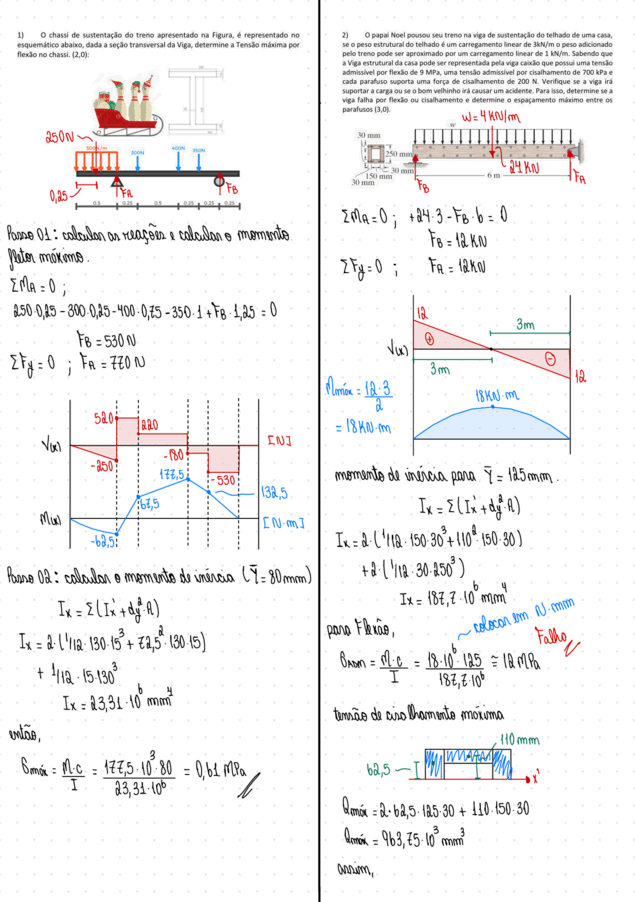 1) O chassi de sustentação do treno apresentado na Figura, é representado no
esquemático abaixo, dada a seção transversal da Viga, determine a Tensão máxima por
flexão no chassi. (2,0):
250N
500N/m
300N
400N
350N
0,25
FA
FB
0.5
0.25
0.5
0.25
0.25
Passo 01: calcular as reações e calcular o momento
fletor máximo.
ΣMA=0 ;
250·0,25-300·0,25-400·0,75-350·1+FB·1,25=0
FB=530N
ΣFy=0 ; FA=770N
520
220
V(x)
[N]
-250
-180
-530
177,5
132,5
67,5
M(x)
[N·m]
-62,5
Passo 02: calcular o momento de inércia (Ȳ=80mm)
Ix=Σ(Ix'+dy²·A)
Ix=2·(1/12·130·15³+72,5²·130·15)
+ 1/12·15·130³
Ix=23,31·10⁶ mm⁴
então,
σmáx = M·c/I = 177,5·10³·80/23,31·10⁶ = 0,61 MPa
2) O papai Noel pousou seu treno na viga de sustentação do telhado de uma casa,
se o peso estrutural do telhado é um carregamento linear de 3kN/m o peso adicionado
pelo treno pode ser aproximado por um carregamento linear de 1 kN/m. Sabendo que
a Viga estrutural da casa pode ser representada pela viga caixão que possui uma tensão
admissível por flexão de 9 MPa, uma tensão admissível por cisalhamento de 700 kPa e
cada parafuso suporta uma força de cisalhamento de 200 N. Verifique se a viga irá
suportar a carga ou se o bom velhinho irá causar um acidente. Para isso, determine se a
viga falha por flexão ou cisalhamento e determine o espaçamento máximo entre os
parafusos (3,0).
W=4KN/m
w
30 mm
250 mm
30 mm
150 mm
30 mm
24KN
6 m
FB
FA
ΣMA=0 ; +24·3-FB·6=0
FB=12KN
ΣFy=0 ; FA=12KN
12
3m
V(x)
3m
12
Mmáx=12·3/2
=18KN·m
18KN·m
momento de inércia para Ȳ=125mm.
Ix=Σ(Ix'+dy²·A)
Ix=2·(1/12·150·30³+110²·150·30)
+2·(1/12·30·250³)
Ix=187,7·10⁶ mm⁴
para Flexão,
colocar em N·mm
Falha
σADM = M·c/I = 18·10⁶·125/187,7·10⁶ ≅ 12MPa
tensão de cisalhamento máxima
110mm
62,5
x'
Qmáx=2·62,5·125·30+110·150·30
Qmáx=963,75·10³ mm³
assim,